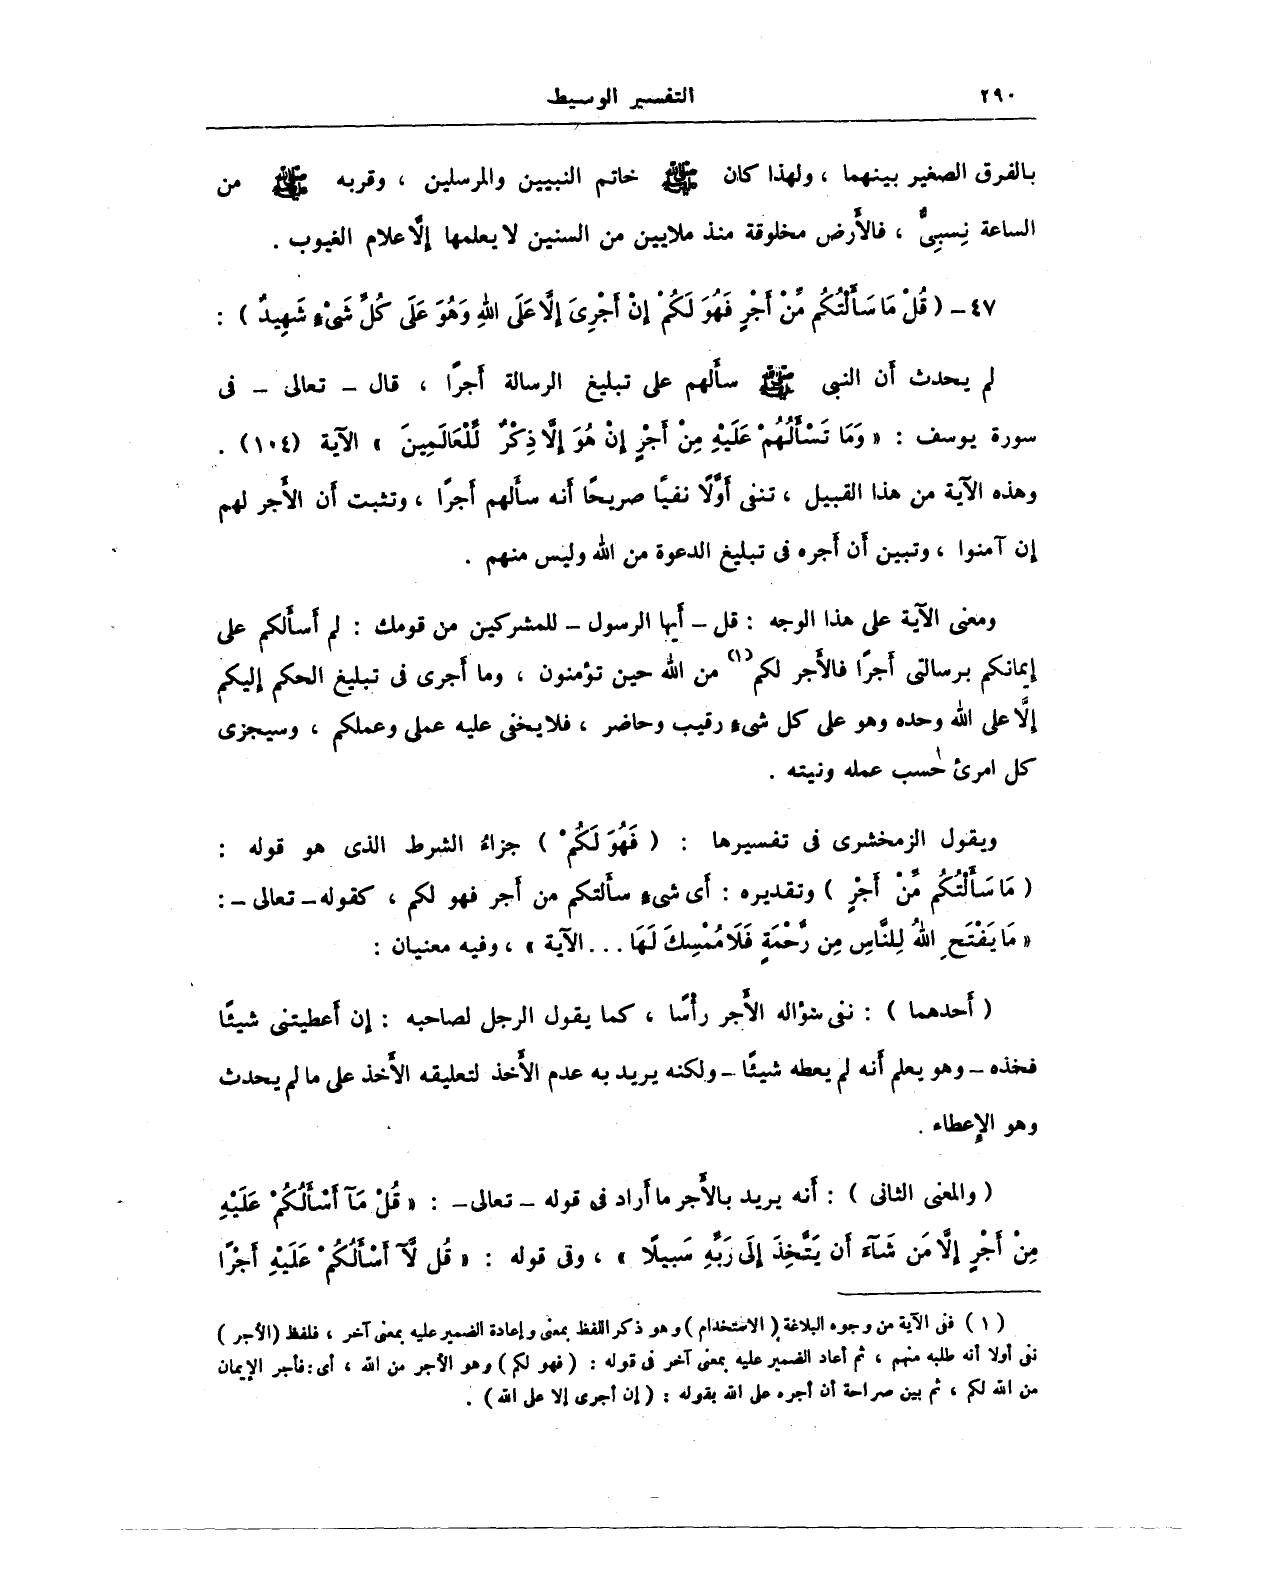 ٢٩٠ التفسير الوسيط
بالفرق الصغير بينهما ، ولهذا كان ﷺ خاتم النبيين والمرسلين ، وقربه ﷺ من
الساعة نِسبِىٌّ ، فالأَرض مخلوقة منذ ملايين من السنين لا يعلمها إلَّا علام الغيوب .
٤٧ ــ ( قُلْ مَا سَأَلْتُكُم مِّنْ أَجْرٍ فَهُوَ لَكُمْ إنْ أَجْرِىَ إلَّا عَلَى اللهِ وَهُوَ عَلَى كُلِّ شَىْءٍ شَهِيدٌ ) :
لم يحدث أن النبى ﷺ سأَلهم على تبليغ الرسالة أَجرًا ، قال ــ تعالى ــ فى
سورة يوسف : « وَمَا تَسْأَلُهُمْ عَلَيْهِ مِنْ أَجْرٍ إنْ هُوَ إلَّا ذِكْرٌ لِّلْعَالَمِينَ » الآية (١٠٤) .
وهذه الآية من هذا القبيل ، تنفى أَوَّلًا نفيًا صريحًا أنه سألهم أجرًا ، وتثبت أن الأَجر لهم
إن آمنوا ، وتبين أَن أَجره فى تبليغ الدعوة من الله وليس منهم .
ومعنى الآية على هذا الوجه : قل ــ أَيها الرسول ــ للمشركين من قومك : لم أَسأَلكم على
إيمانكم برسالتى أَجرًا فالأَجر لكم(١) من الله حين تؤمنون ، وما أَجرى فى تبليغ الحكم إليكم
إلَّا على الله وحده وهو على كل شىءٍ رقيب وحاضر ، فلا يخفى عليه عملى وعملكم ، وسيجزى
كل امرئ حسب عمله ونيته .
ويقول الزمخشرى فى تفسيرها : ( فَهُوَ لَكُمْ ) جزاءُ الشرط الذى هو قوله :
( مَا سَأَلْتُكُم مِّنْ أَجْرٍ ) وتقديره : أَى شىءٍ سألتكم من أجر فهو لكم ، كقوله ــ تعالى ــ :
« مَا يَفْتَحِ اللهُ لِلنَّاسِ مِن رَّحْمَةٍ فَلَا مُمْسِكَ لَهَا . . . الآية » ، وفيه معنيان :
( أَحدهما ) : نفى سؤاله الأَجر رأْسًا ، كما يقول الرجل لصاحبه : إن أَعطيتنى شيئًا
فخذه ــ وهو يعلم أَنه لم يعطه شيئًا ــ ولكنه يريد به عدم الأَخذ لتعليقه الأَخذ على ما لم يحدث
وهو الإعطاء .
( والمعنى الثانى ) : أَنه يريد بالأَجر ما أَراد فى قوله ــ تعالى ــ : « قُلْ مَآ أَسْأَلُكُمْ عَلَيْهِ
مِنْ أَجْرٍ إلَّا مَن شَآءَ أَن يَتَّخِذَ إلَى رَبِّهِ سَبيلًا » ، وفى قوله : « قُل لَّآ أَسْأَلُكُمْ عَلَيْهِ أَجْرًا
( ١ ) فى الآية من وجوه البلاغة ( الاستخدام ) وهو ذكر اللفظ بمعنى وإعادة الضمير عليه بمعنى آخر ، فلفظ ( الأجر )
نفى أولا أنه طلبه منهم ، ثم أعاد الضمير عليه بمعنى آخر فى قوله : ( فهو لكم ) وهو الأجر من الله ، أى : فأجر الإيمان
من الله لكم ، ثم بين صراحة أن أجره على الله بقوله : ( إن أجرى إلا على الله ) .